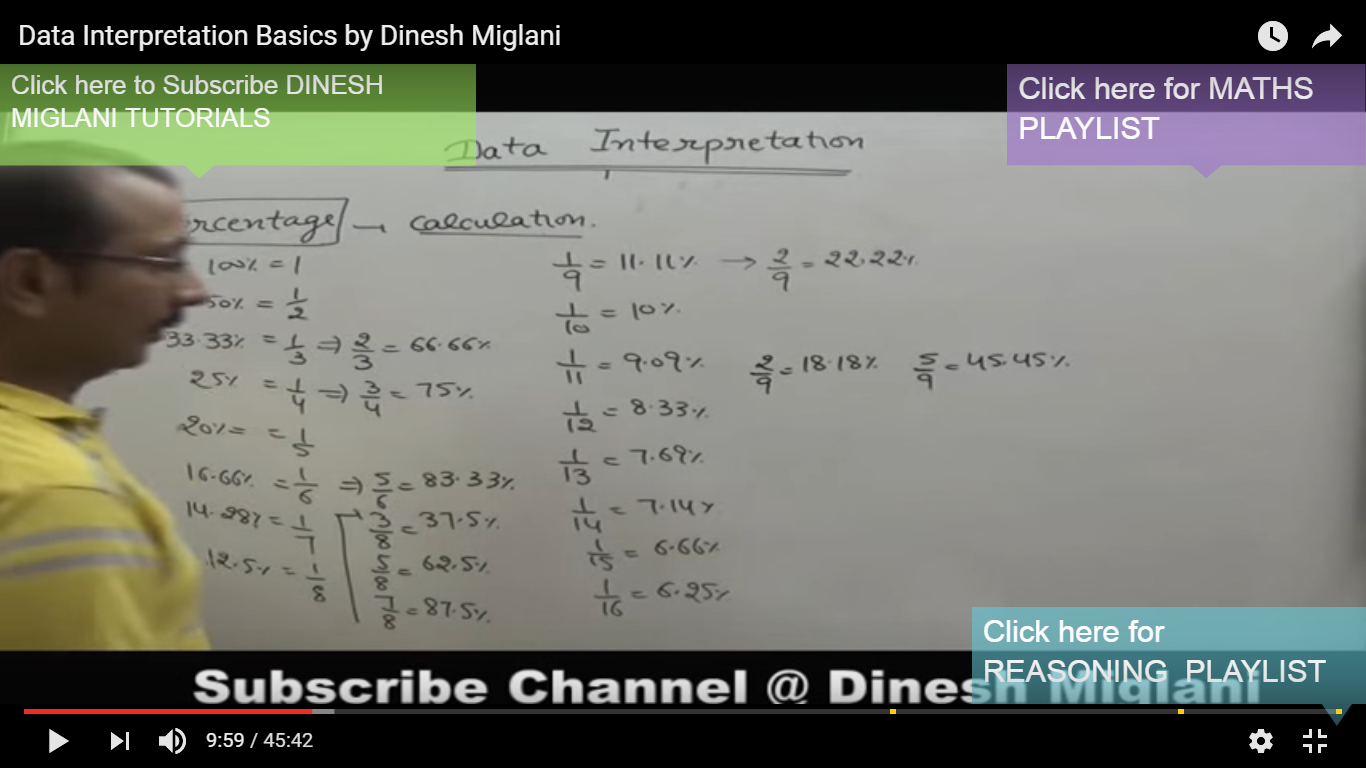 Data Interpretation Basics by Dinesh Miglani
Click here to Subscribe DINESH
MIGLANI TUTORIALS
Click here for MATHS
PLAYLIST
Data Interpretation
ercentage → Calculation.
100% = 1
50% = 1/2
33.33% = 1/3 ⇒ 2/3 = 66.66%
25% = 1/4 ⇒ 3/4 = 75%
20% = = 1/5
16.66% = 1/6 ⇒ 5/6 = 83.33%
14.28% = 1/7
12.5% = 1/8
3/8 = 37.5%
5/8 = 62.5%
7/8 = 87.5%
1/9 = 11.11% → 2/9 = 22.22%
1/10 = 10%
1/11 = 9.09% 2/9 = 18.18% 5/9 = 45.45%
1/12 = 8.33%
1/13 = 7.69%
1/14 = 7.14%
1/15 = 6.66%
1/16 = 6.25%
Click here for
REASONING PLAYLIST
Subscribe Channel @ Dinesh Miglani
9:59 / 45:42